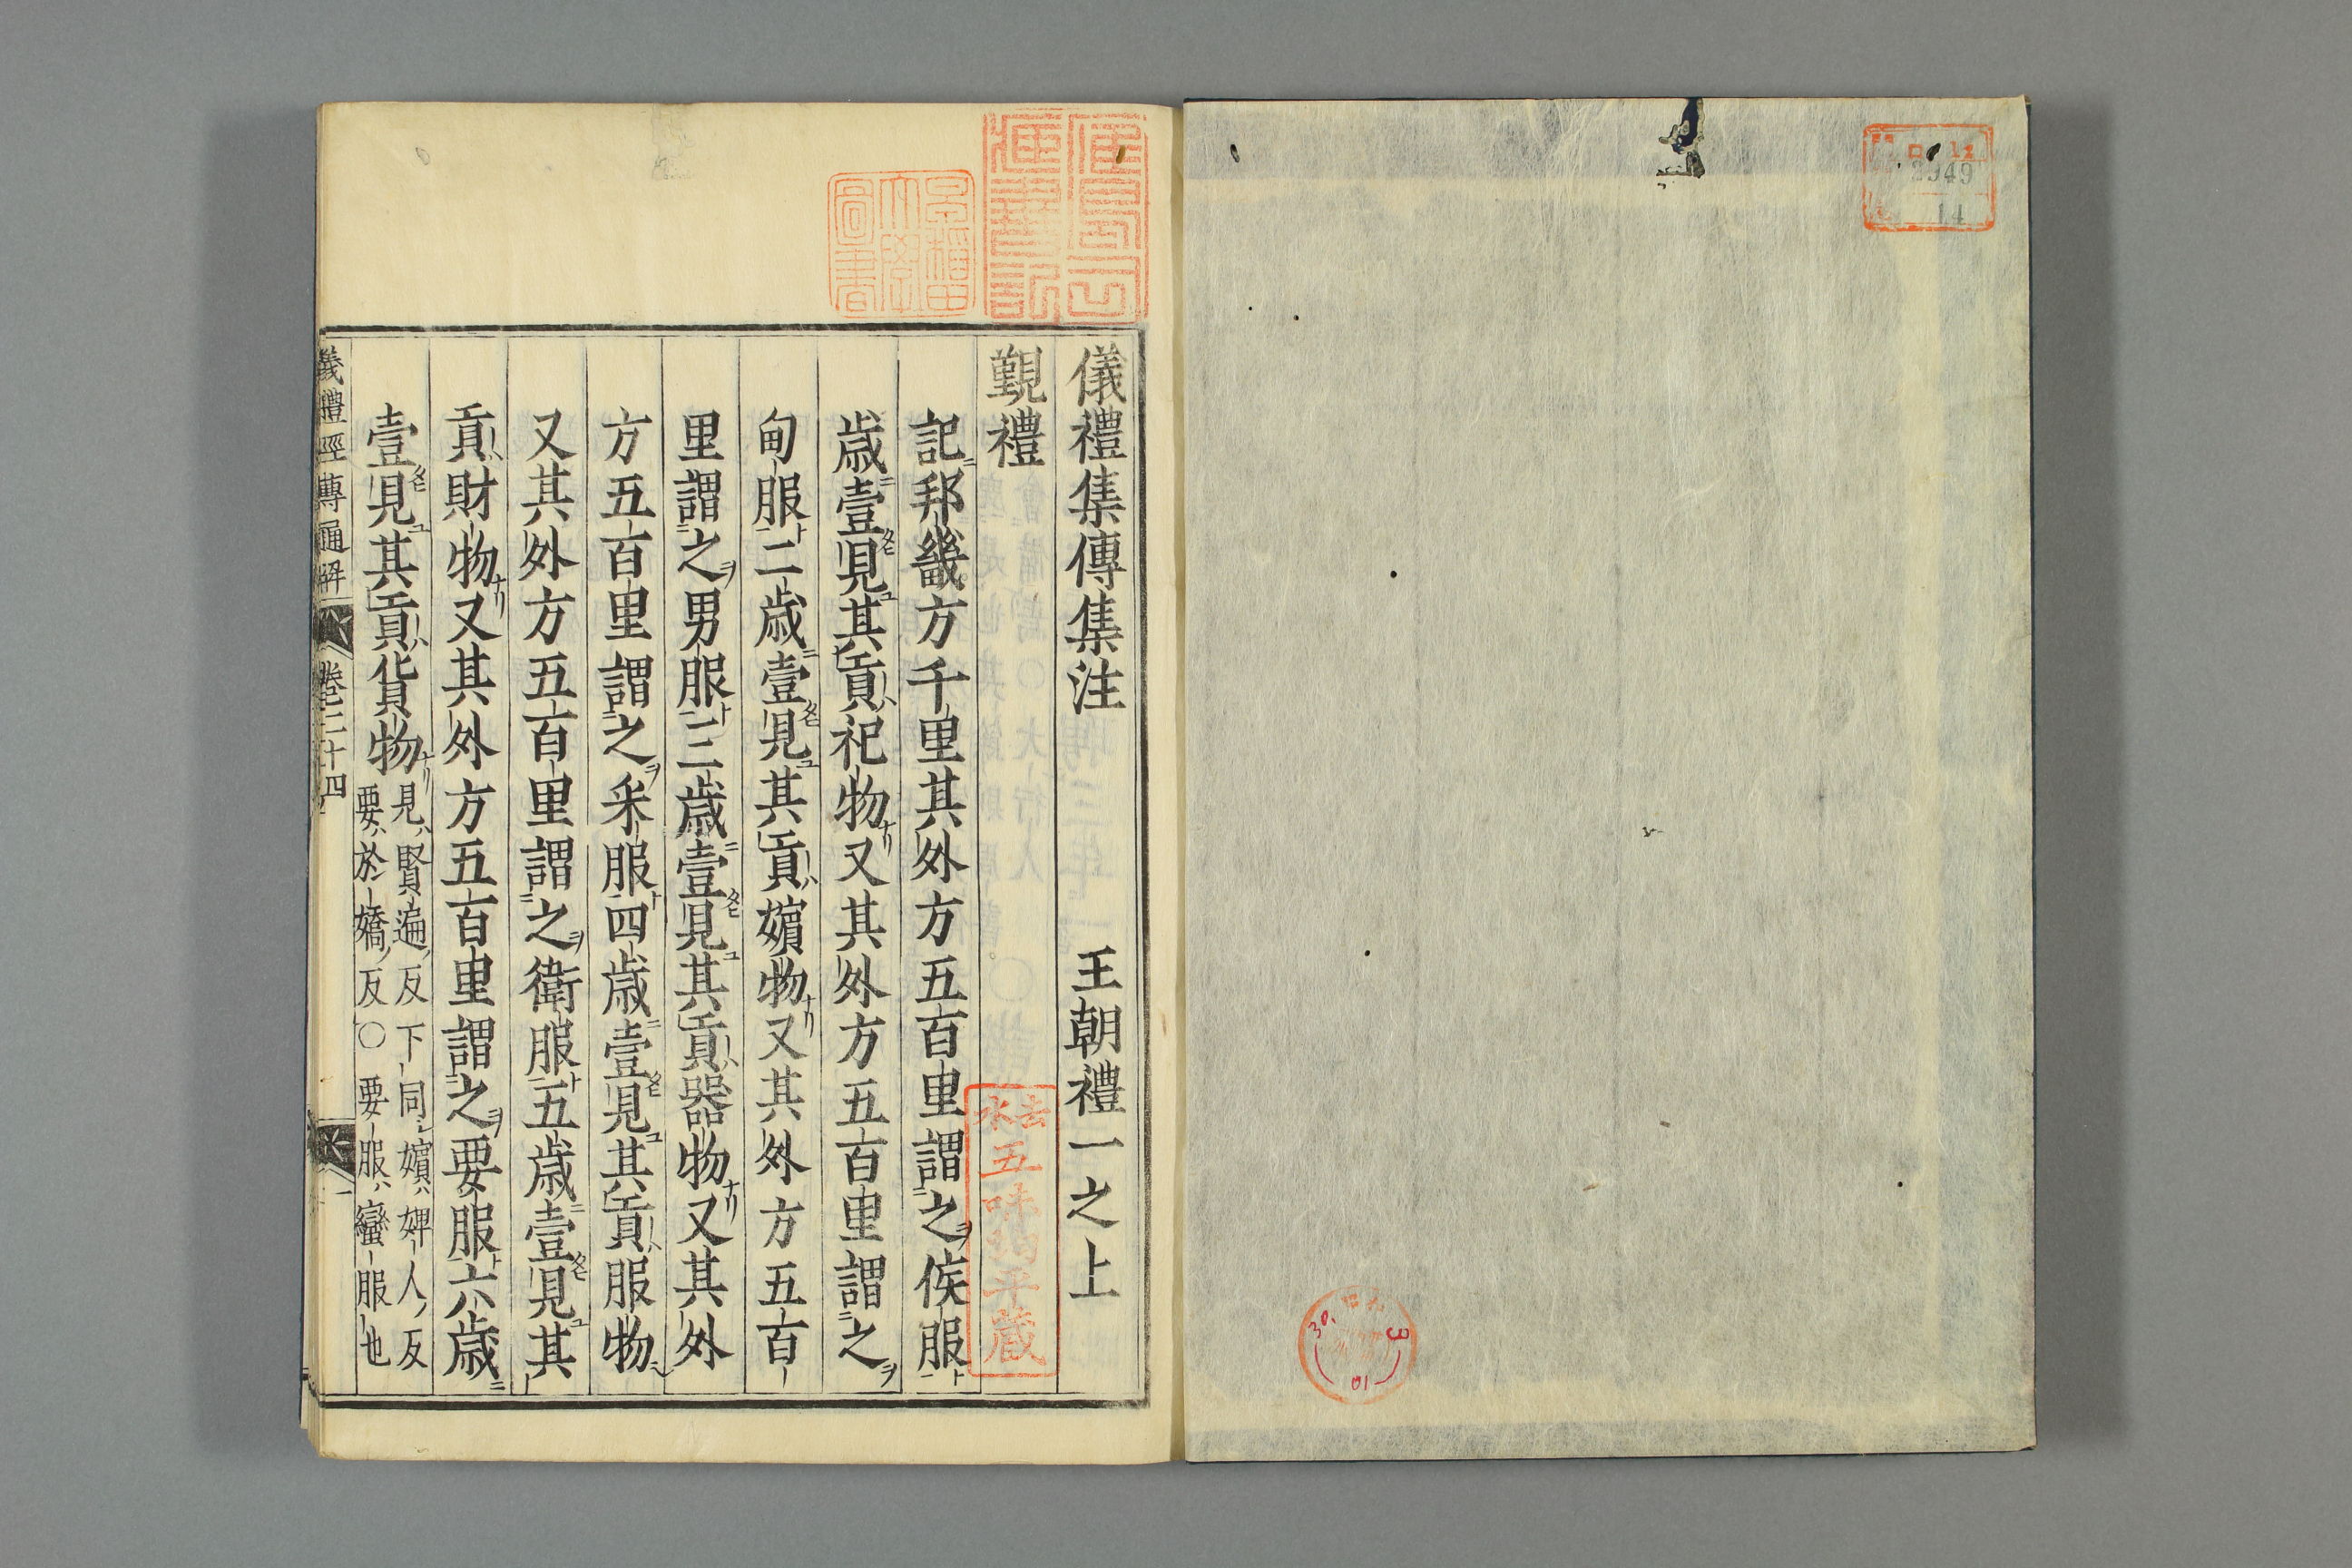 儀禮集傳集注　王朝禮一之上
覲禮
記邦畿方千里其外方五百里謂之侯服
歲壹見其貢祀物又其外方五百里謂之
甸服二歲壹見其貢嬪物又其外方五百
里謂之男服三歲壹見其貢器物又其外
方五百里謂之采服四歲壹見其貢服物
又其外方五百里謂之衛服五歲壹見其
貢財物又其外方五百里謂之要服六歲
壹見其貢貨物
見賢遍反下同嬪婢人反
要於嬌反〇要服蠻服也
儀禮經傳通解　卷二十四　一
早稻田大學圖書
2949
14